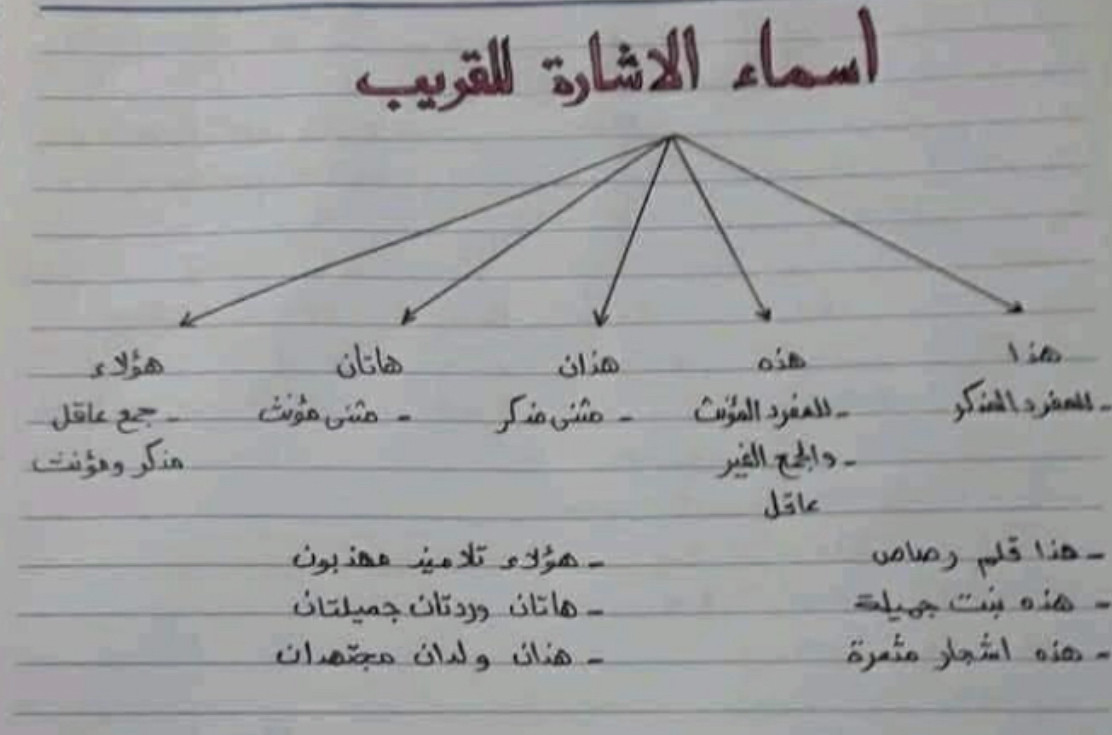 اسماء الاشارة للقريب
هذا هذه هذان هاتان هؤلاء
- للمفرد المذكر - للمفرد المؤنث - مثنى مذكر - مثنى مؤنث - جمع عاقل
- والجمع الغير مذكر ومؤنث
عاقل
- هذا قلم رصاص - هؤلاء تلاميذ مهذبون
- هذه بنت جميلة - هاتان وردتان جميلتان
- هذه اشجار مثمرة - هذان ولدان مجتهدان